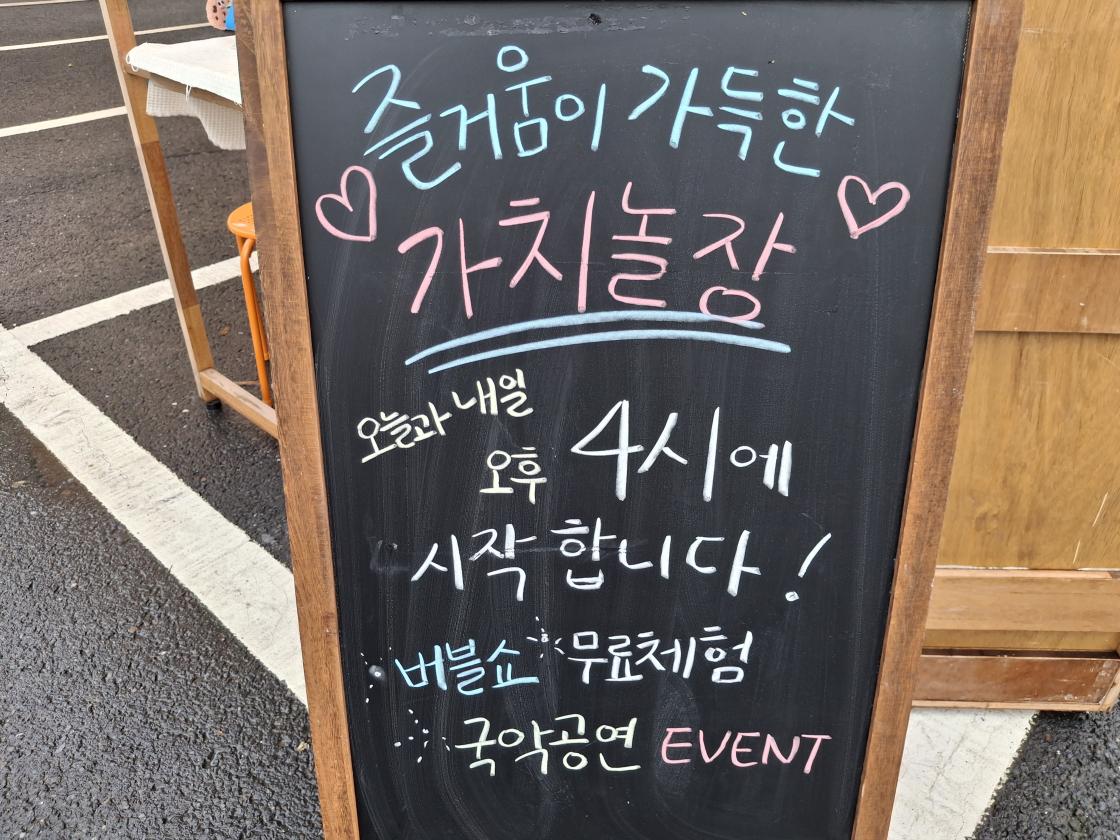 즐거움이 가득한
가치놀장
오늘과 내일
오후 4시에
시작합니다!
버블쇼 무료체험
국악공연 EVENT